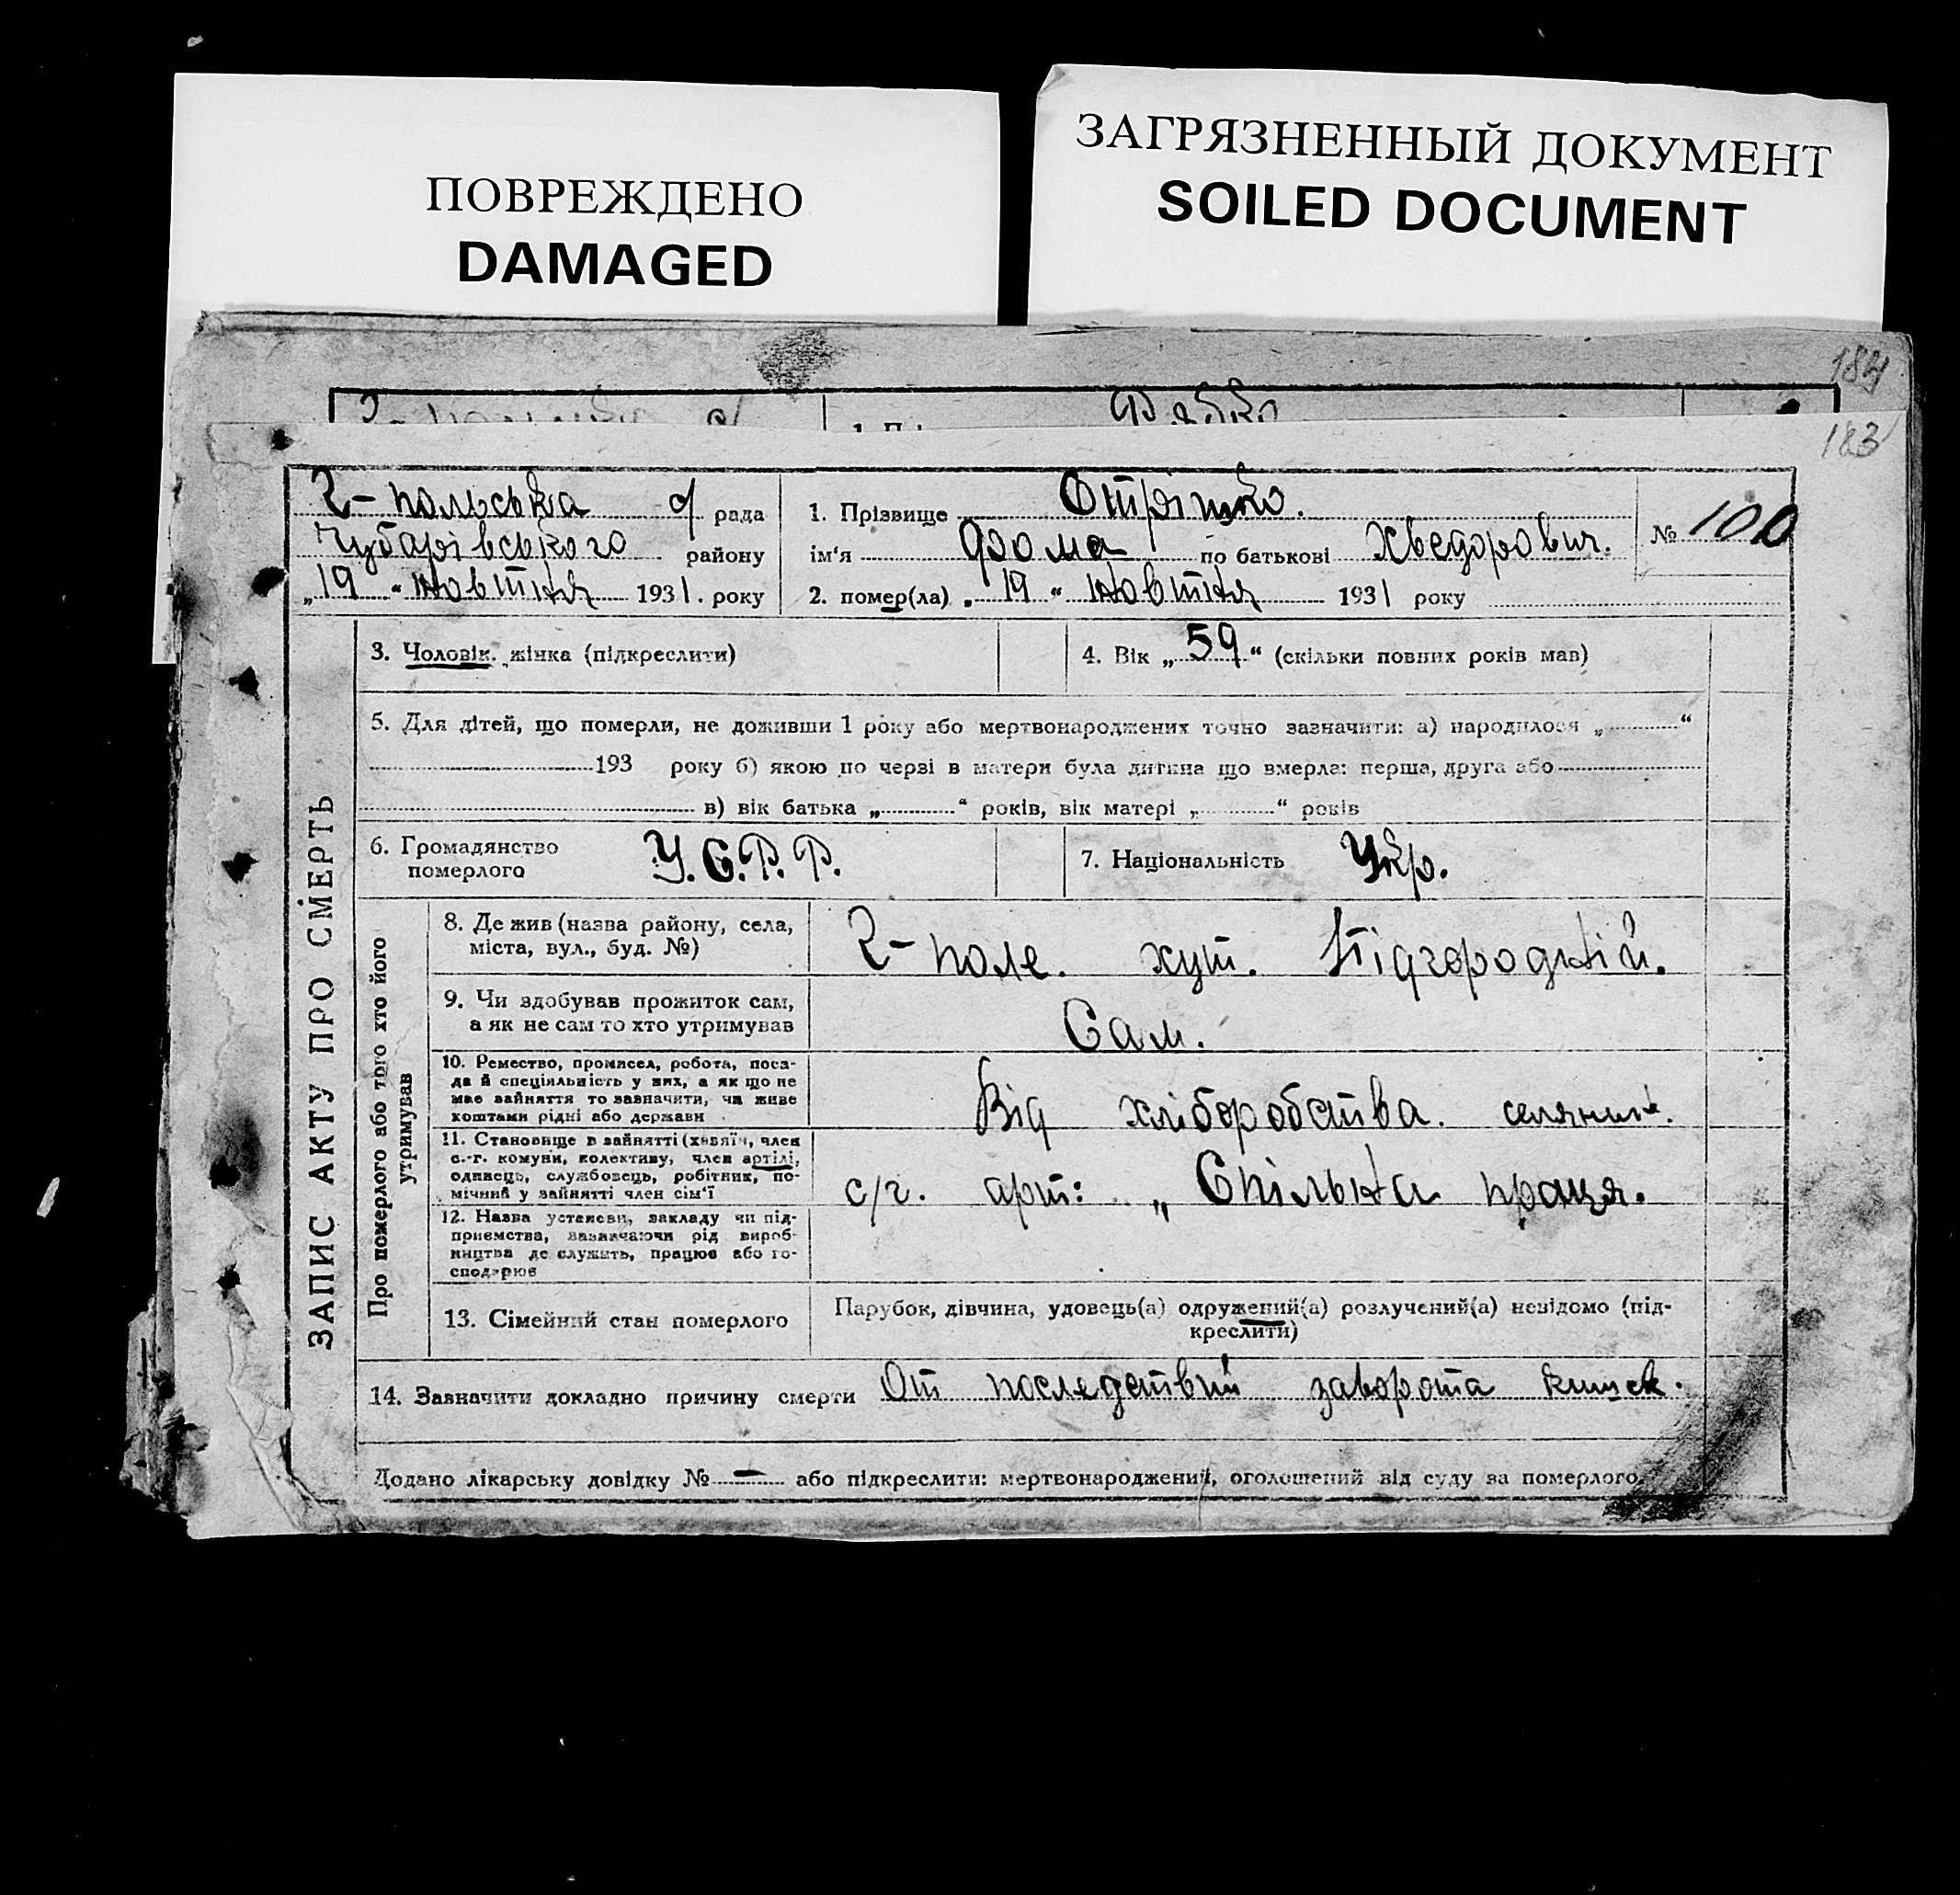 ПОВРЕЖДЕНО
DAMAGED
ЗАГРЯЗНЕННЫЙ ДОКУМЕНТ
SOILED DOCUMENT
184
183
Г-польська с/ рада
Чубарівського району
„19" новтня 1931. року
1. Прізвище Отрішко.
ім'я Фома по батькові Хведорович.
№ 100
2. помер(ла) „19" новтня 1931 року
ЗАПИС АКТУ ПРО СМЕРТЬ
3. Чоловік. жінка (підкреслити)
4. Вік „59" (скільки повних років мав)
5. Для дітей, що померли, не доживши 1 року або мертвонароджених точно зазначити: а) народилося „ "
193 року б) якою по черзі в матери була дитина що вмерла: перша, друга або
в) вік батька „ " років, вік матері „ " років
6. Громадянство померлого У.С.Р.Р.
7. Національність Укр.
Про померлого або того хто його утримував
8. Де жив (назва району, села,
міста, вул., буд. №)
Г-поле. хут. Підгородній.
9. Чи здобував прожиток сам,
а як не сам то хто утримував
Сам.
10. Ремество, промисел, робота, поса-
да й спеціяльність у них, а як що не
має зайняття то зазначити, чи живе
коштами рідні або держави
Від хліборобства. селянин.
11. Становище в зайнятті (хазяїн, член
с.-г. комуни, колективу, член артілі,
одинець, службовець, робітник, по-
мічний у зайнятті член сім'ї
с/г. арт: „Спільна праця.
12. Назва установи, закладу чи під-
приємства, зазначаючи рід вироб-
ництва де служить, працює або го-
сподарює
13. Сімейний стан померлого
Парубок, дівчина, удовець(а) одружений(а) розлучений(а) невідомо (під-
креслити)
14. Зазначити докладно причину смерти От последствий заворота кишек.
Додано лікарську довідку № — або підкреслити: мертвонароджений, оголошений від суду за померлого.